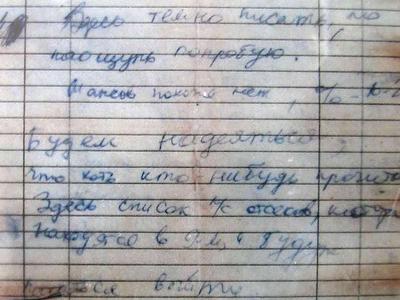 Здесь темно писать, но
наощупь попробую.
Шансов похоже нет, %-10-2
Будем надеяться,
что хоть кто-нибудь прочита
Здесь список л/с отсеков, которы
находятся в 9-м и будут
выйти.